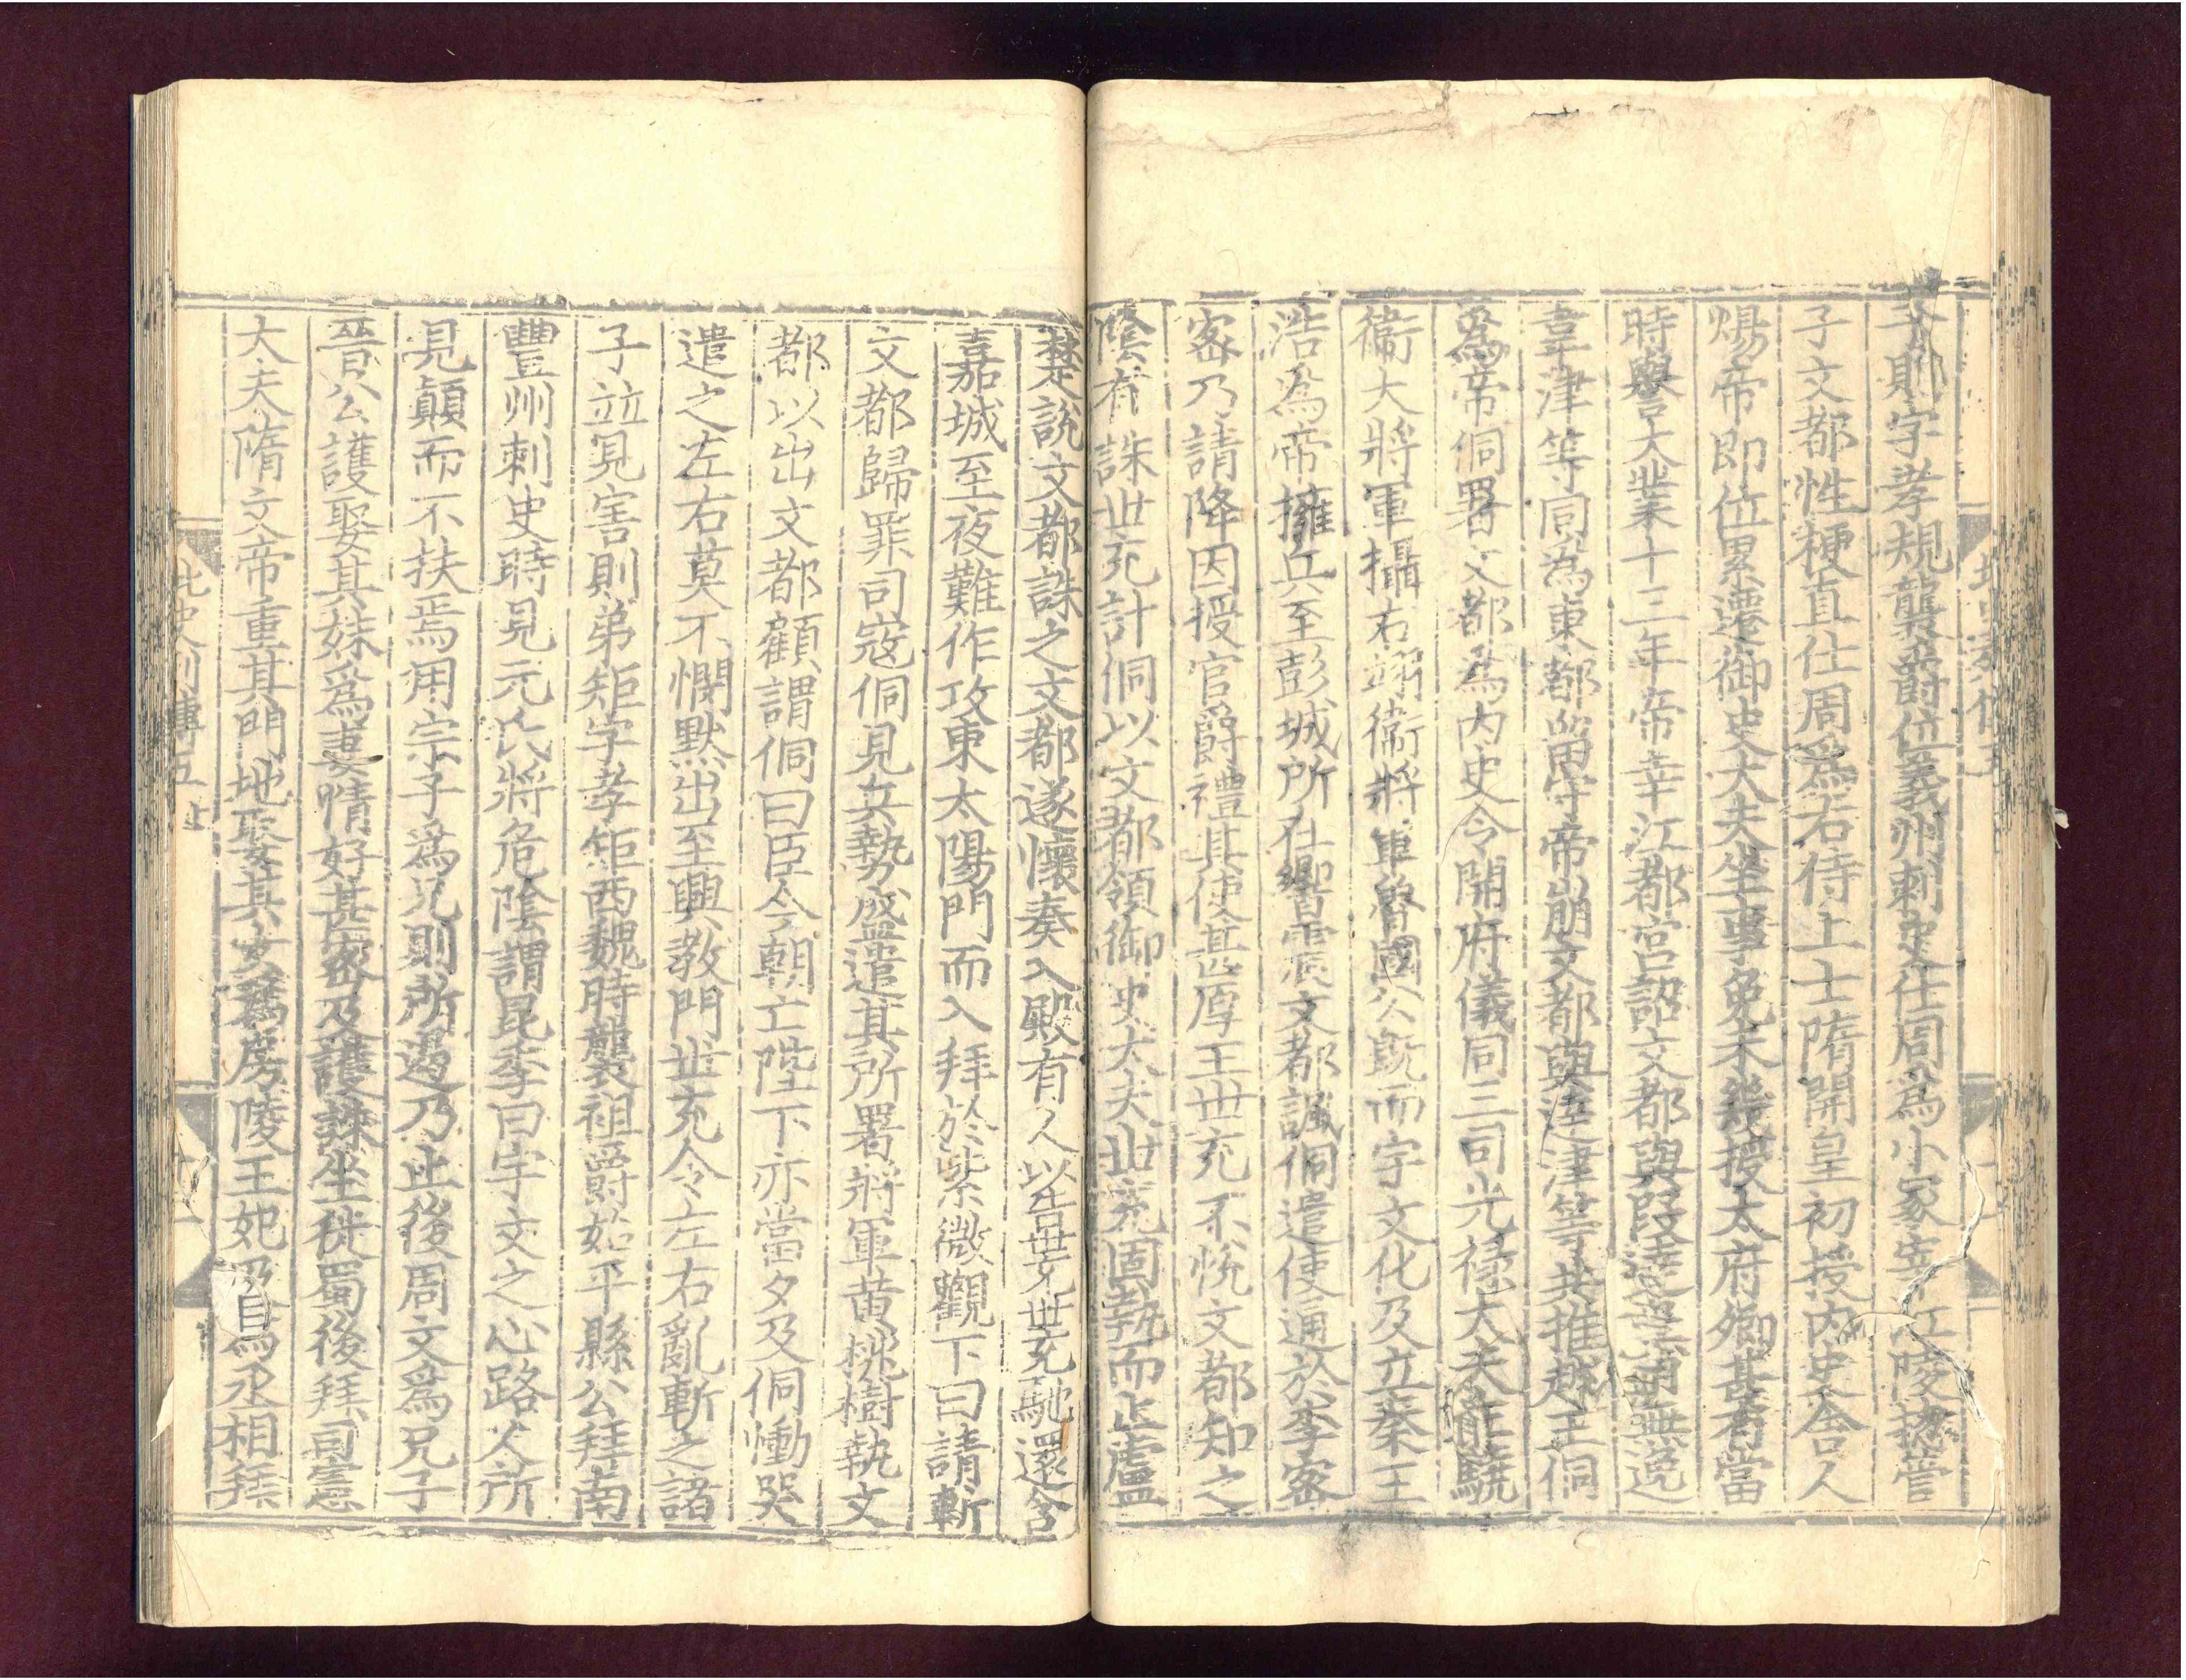 孝則字孝規襲爵位義州刺史仕周爲小冢宰江陵揔管
子文都性梗直仕周爲右侍上士隋開皇初授内史舍人
煬帝即位累遷御史大夫坐事免未幾授太府卿甚有當
時譽大業十三年帝幸江都宫詔文都與段達皇甫無逸
韋津等同為東都留守帝崩文都與達津等共推越王侗
爲帝侗署文都爲内史令開府儀同三司光禄大夫左驍
衞大將軍攝右翊衞將軍魯國公既而宇文化及立秦王
浩爲帝擁兵至彭城所在響震文都諷侗遣使通於李密
密乃請降因授官爵禮其使甚厚王世充不悅文都知之
陰有誅世充計侗以文都領御史大夫世充固執而止盧
楚說文都誅之文都遂懷奏入殿有人以告世充世充馳還含
嘉城至夜難作攻東太陽門而入拜於紫微觀下曰請斬
文都歸罪司寇侗見兵勢盛遣其所署將軍黄桃樹執文
都以出文都顧謂侗曰臣今朝亡陛下亦當夕及侗慟哭
遣之左右莫不憫默出至興教門世充令左右亂斬之諸
子竝見害則弟矩字孝矩西魏時襲祖爵始平縣公拜南
豐州刺史時見元氏將危陰謂昆季曰宇文之心路人所
見顛而不扶焉用宗子爲兄則所遏乃止後周文爲兄子
晉公護娶其妹爲妻情好甚密及護誅坐徙蜀後拜司憲
大夫隋文帝重其門地娶其女爲房陵王妃及爲丞相拜
北史列傳五